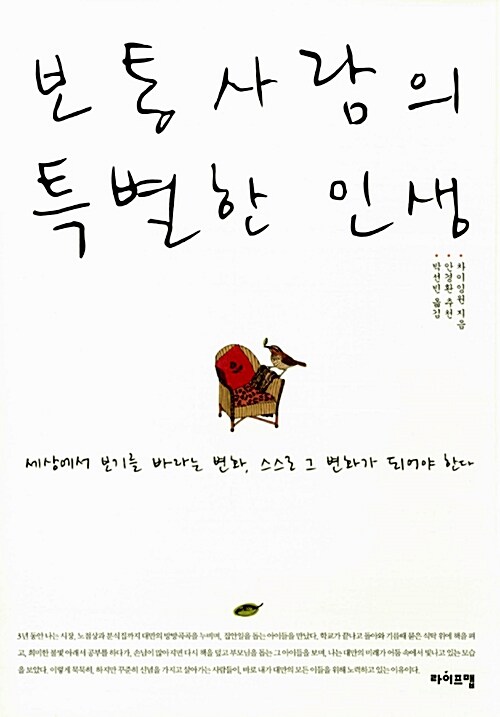 보통사람의
특별한 인생
• 차이잉원 지음
• 안경환 추천
• 박선빈 옮김
세상에서 보기를 바라는 변화, 스스로 그 변화가 되어야 한다
3년 동안 나는 시장, 노점상과 분식집까지 대만의 방방곡곡을 누비며, 집안일을 돕는 아이들을 만났다. 학교가 끝나고 돌아와 기름때 묻은 식탁 위에 책을 펴
고, 희미한 불빛 아래서 공부를 하다가, 손님이 많아지면 다시 책을 덮고 부모님을 돕는 그 아이들을 보며, 나는 대만의 미래가 어둠 속에서 빛나고 있는 모습
을 보았다. 이렇게 묵묵히, 하지만 꾸준히 신념을 가지고 살아가는 사람들이, 바로 내가 대만의 모든 이들을 위해 노력하고 있는 이유이다.
라이프맵